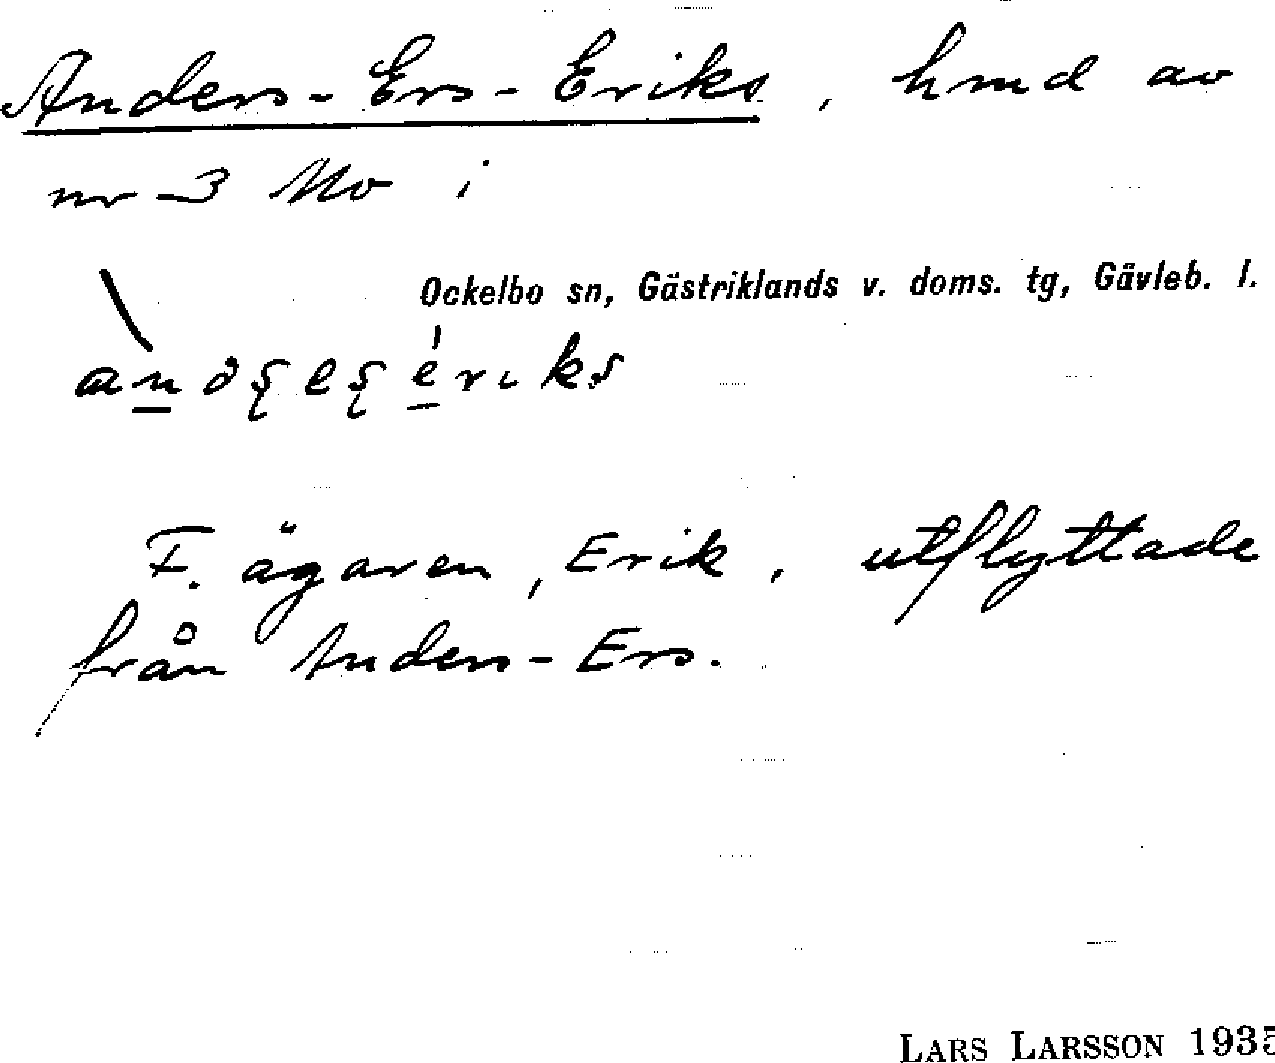 Anders-Ers-Eriks, hmd av
nr 3 Mo i
Ockelbo sn, Gästriklands v. doms. tg, Gävleb. l.
F. ägaren, Erik, utflyttade
från Anders-Ers.
LARS LARSSON 1935